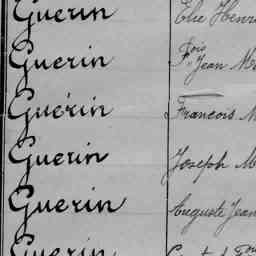 Guerin Elie Henri
Guerin Fois Jean M
Guérin Francois M
Guerin Joseph M
Guerin Auguste Jean
Guerin